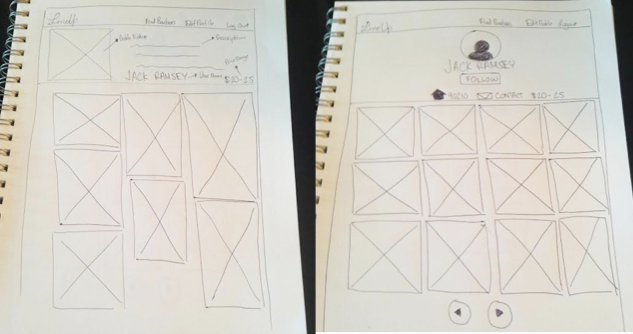 LineUp
Find Barbers Edit Profile Log Out
Profile Picture
Description
Price Range
JACK RAMSEY User Name $20-25
LineUp
Find Barbers Edit Profile Logout
JACK RAMSEY
FOLLOW
CONTACT $20-25